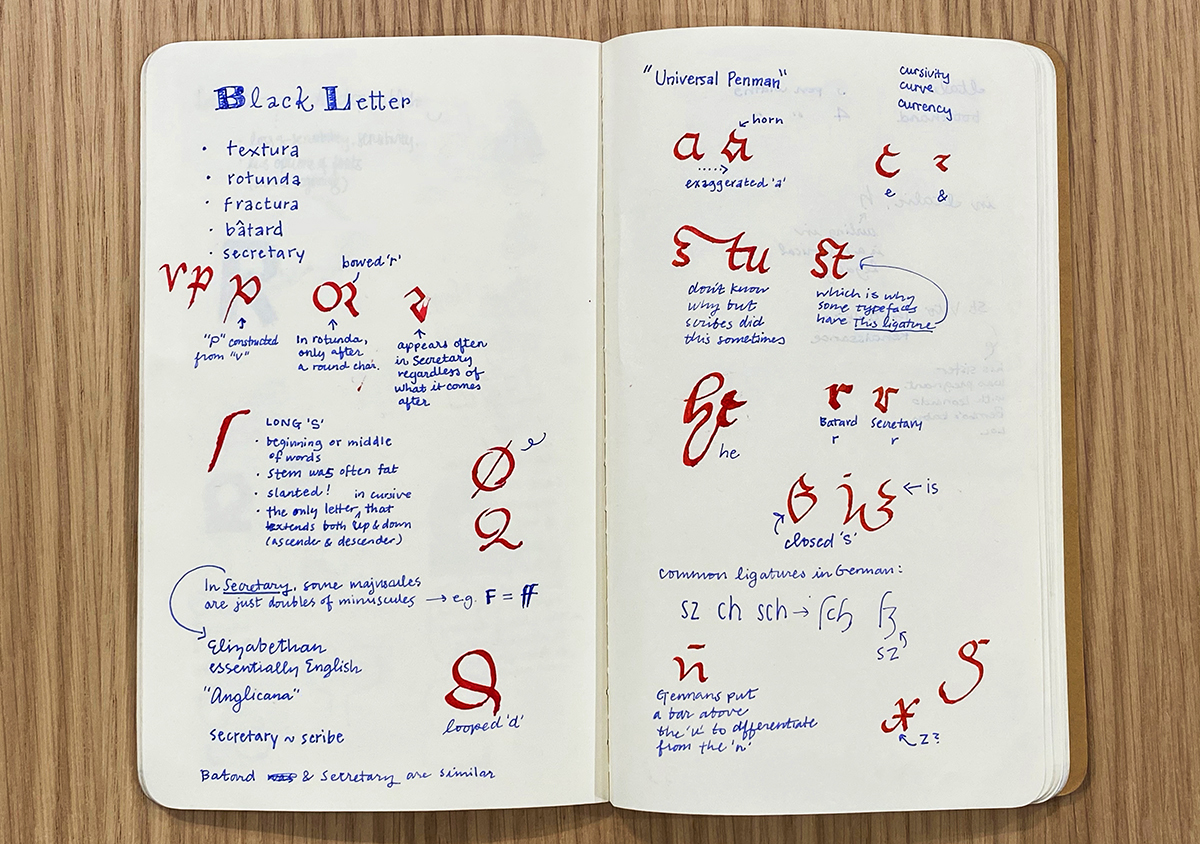 Black Letter
· textura
· rotunda
· fractura
· bâtard
· secretary
v p p
"p" constructed
from "v"
bowed 'r'
or
In rotunda,
only after
a round char.
appears often
in Secretary
regardless of
what it comes
after
ſ
LONG 'S'
· beginning or middle
of words
· stem was often fat
· slanted! in cursive
· the only letter, that
extends both up & down
(ascender & descender)
In Secretary, some majuscules
are just doubles of minuscules → eg. F = ff
Elizabethan
essentially English
"Anglicana"
looped 'd'
secretary ~ scribe
Batard was & Secretary are similar
"Universal Penman"
cursivity
curve
currency
horn
a a
exaggerated 'a'
e &
s tu st
don't know
why but
scribes did
this sometimes
which is why
some typefaces
have This ligature
he
he
r r
Batard Secretary
r r
is
closed 's'
common ligatures in German:
sz ch sch → ſch ſz
sz
ū
Germans put
a bar above
the 'u' to differentiate
from the 'n'
z?